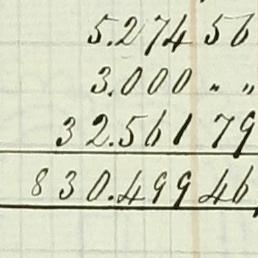 5.274 56
3.000 〃 〃
32.561 79
830.499 46